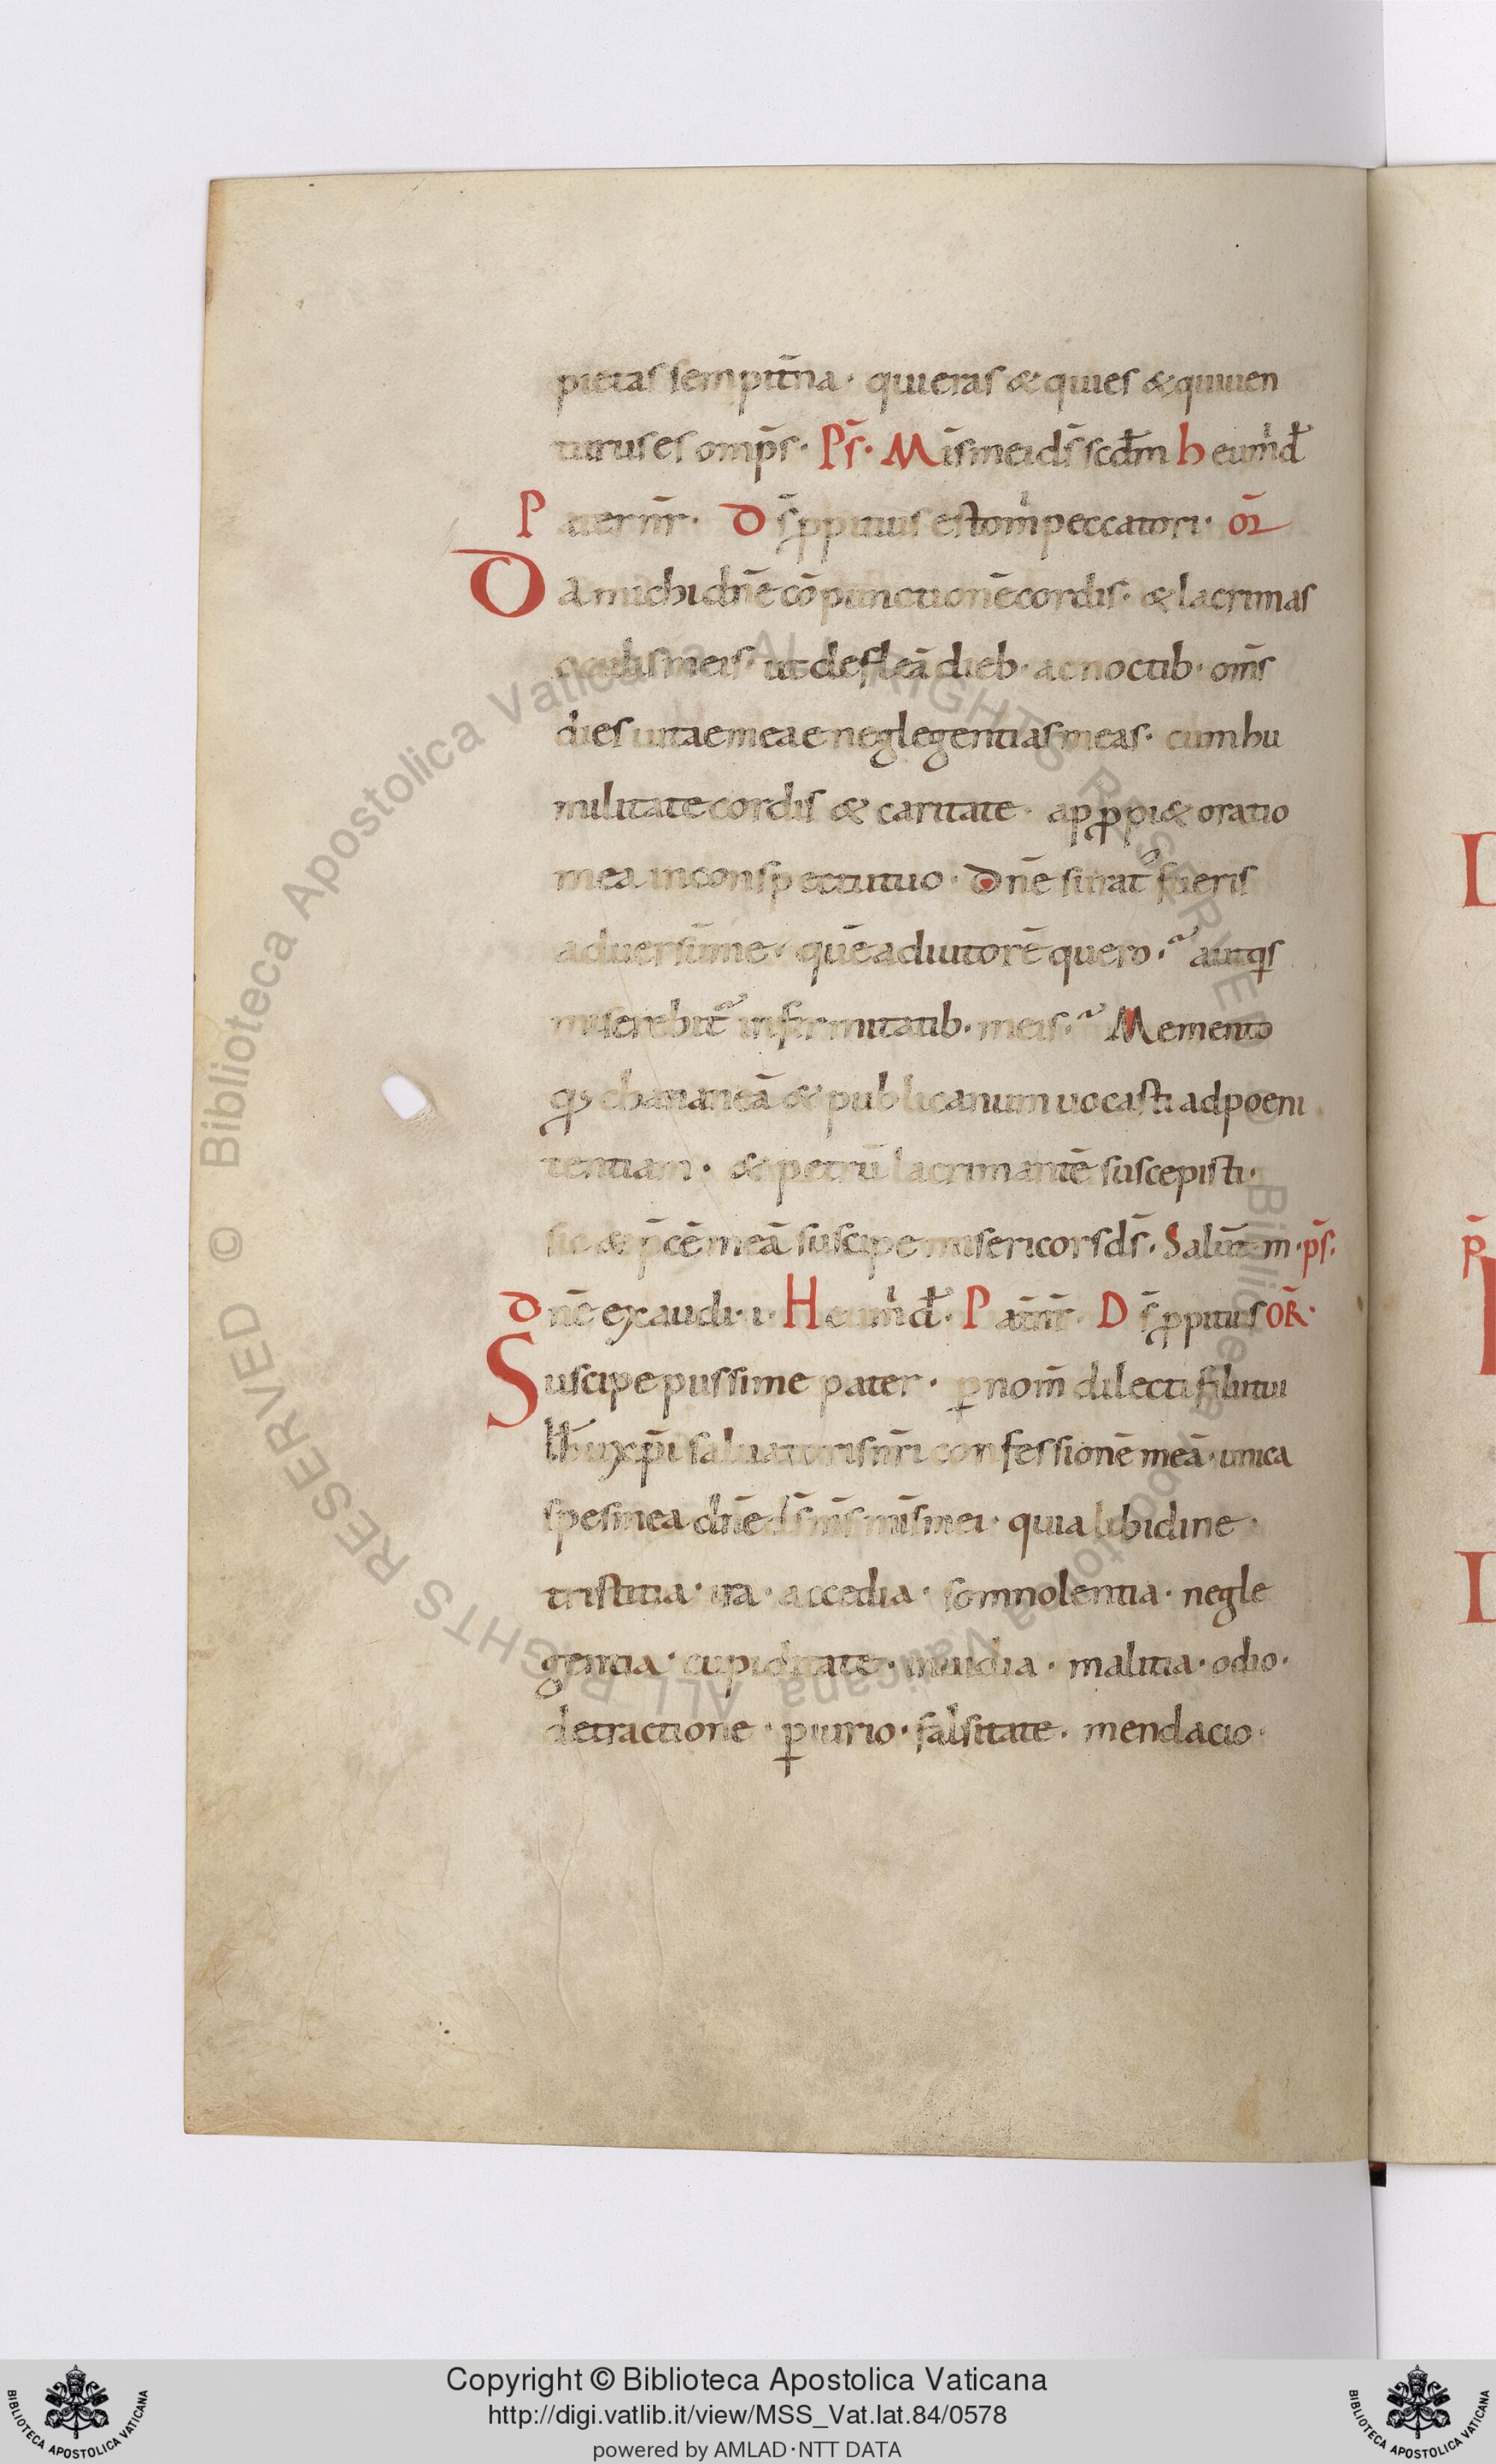 pietas sempit̄na · qui eras & qui es & qui uen
turus es omp̄s · Ps̄ · Mis̄ mei ds̄ scd̄m heu m̍ d̄
Pater nr̄ · Ds̄ ꝓpitius esto m̍ peccatori · or̄
Da michi dn̄e cōpunctionē cordis · & lacrimas
oculis meis · ut defleā dieb · ac noctib · om̄s
dies uitae meae neglegentias meas · cum hu
militate cordis & caritate · apꝓpi& oratio
mea in conspectu tuo · Dn̄e si irat᷒ fueris
aduersū me · quē adiutorē quero · aut qis
miserebit᷒ infirmitatib · meis · Memento
qꝫ chananeā & publicanum uocasti ad poeni
tentiam · & petrū lacrimantē suscepisti ·
sic & p̄cē meā suscipe misericors ds̄ · Salūt m · ps̄ ·
Dn̄e exaudi · i · Heu m̍ d̄ · Pat̄ nr̄ · Ds̄ ꝓpitius OR̄ ·
Suscipe piissime pater · ꝑ nom̄ dilecti filii tui
Ih̄u xp̄i saluatoris nr̄i confessionē meā · unica
spes mea dn̄e ds̄ ms̄ mis̄ mei · quia libidine ·
tristitia · ira · accedia · somnolentia · negle
gentia · cupiditate · inuidia · malitia · odio ·
detractione · ꝑiurio · falsitate · mendacio ·
Copyright © Biblioteca Apostolica Vaticana
http://digi.vatlib.it/view/MSS_Vat.lat.84/0578
powered by AMLAD·NTT DATA
BIBLIOTECA APOSTOLICA VATICANA
BIBLIOTECA APOSTOLICA VATICANA